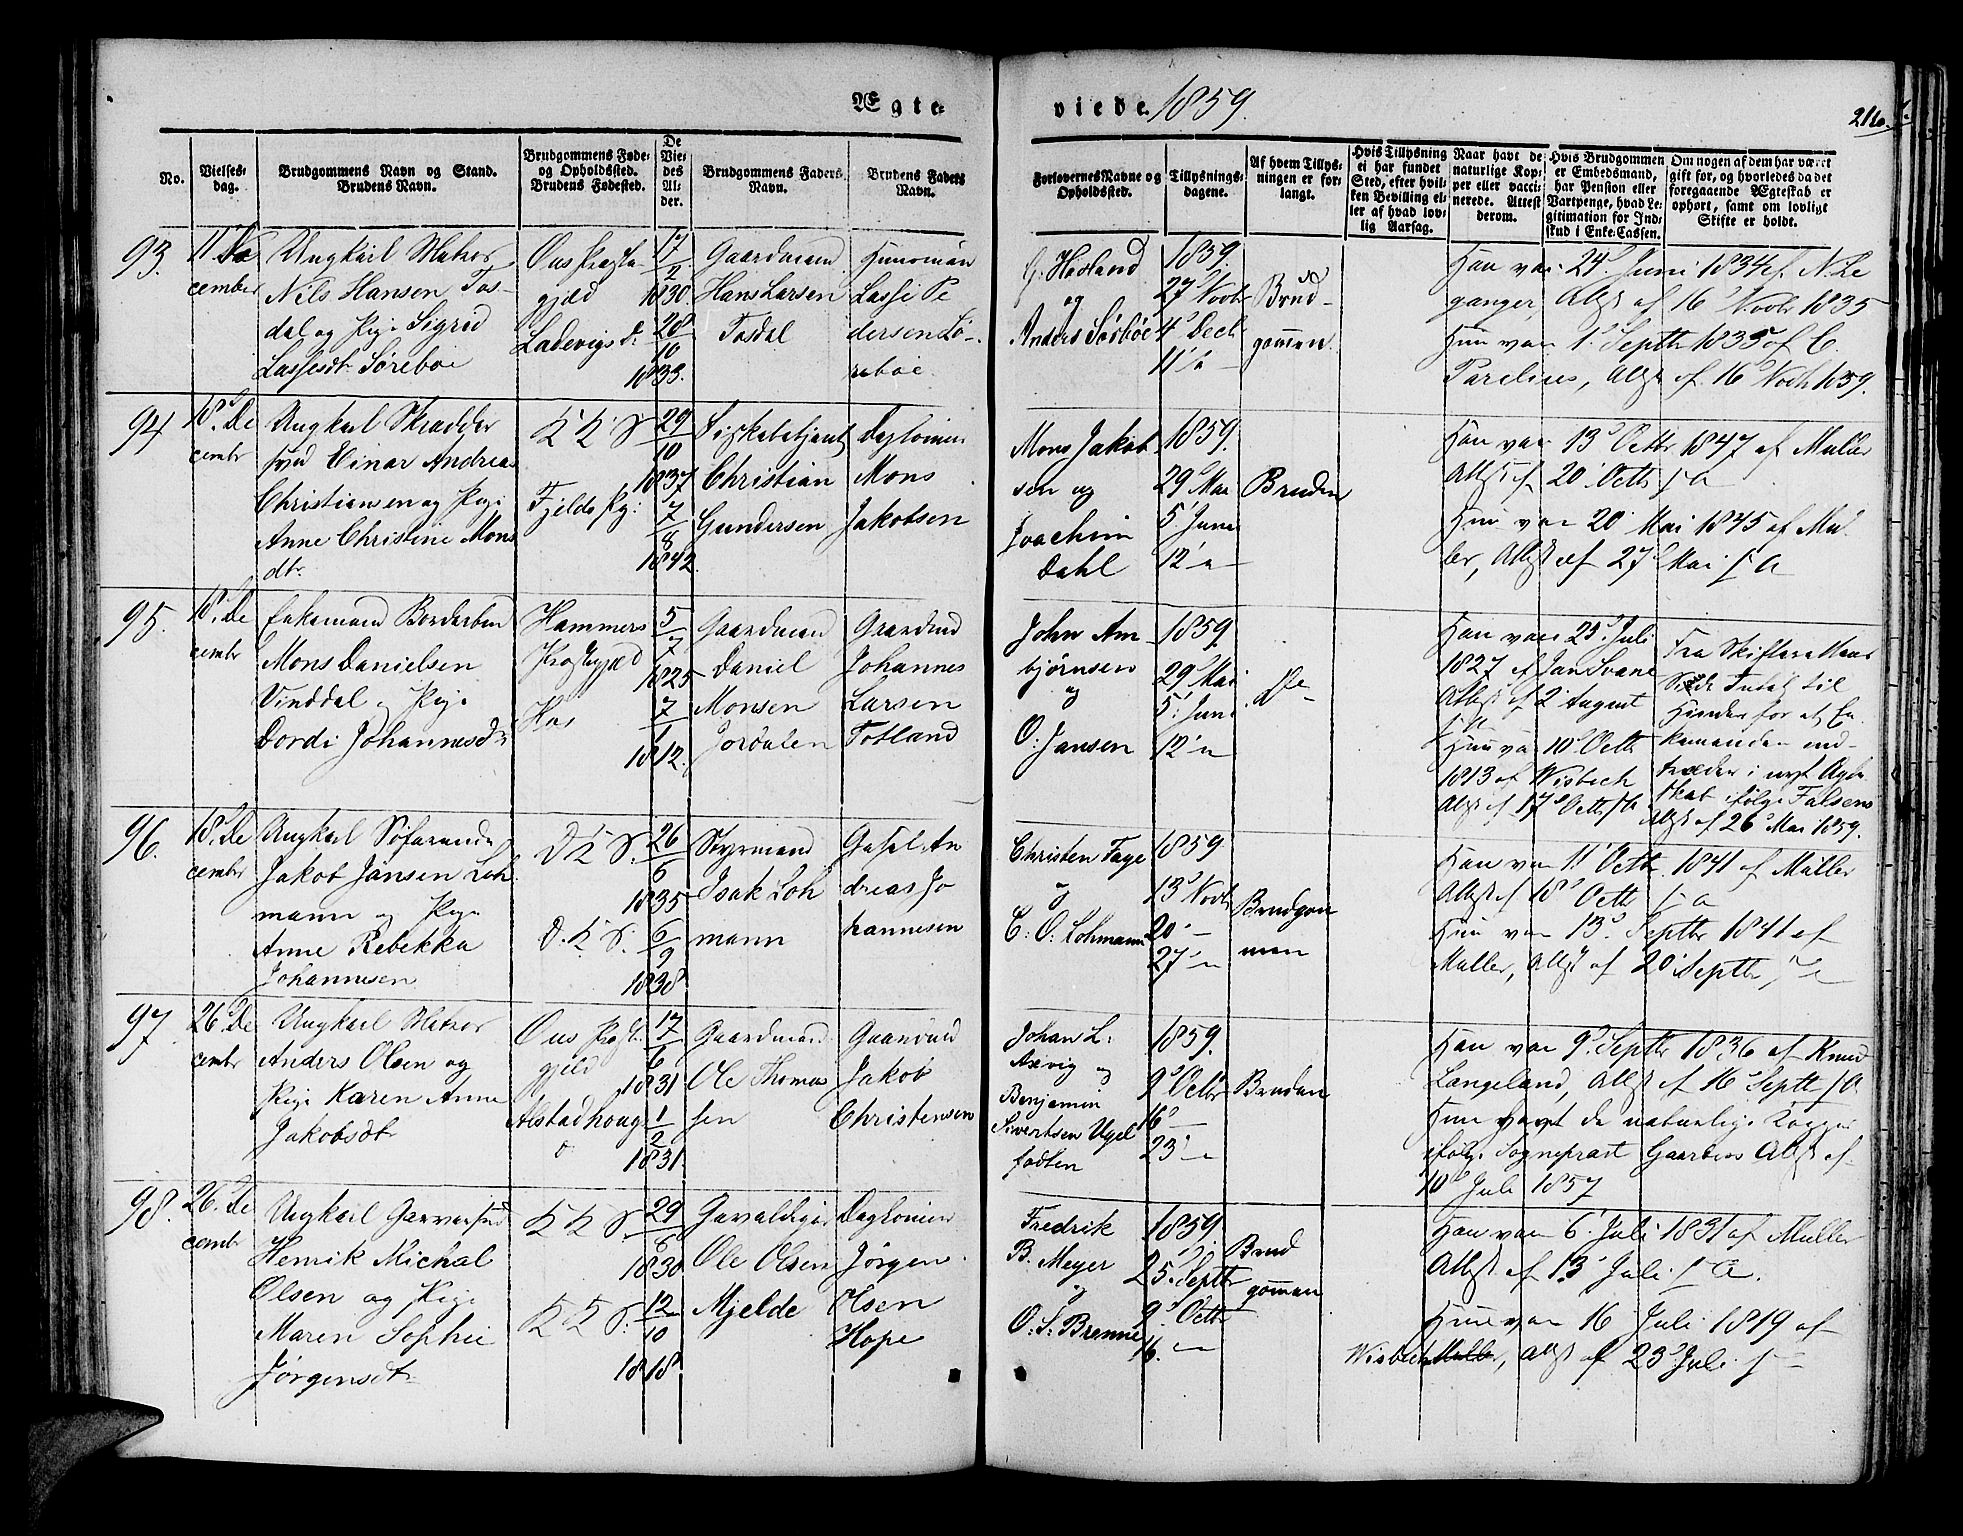 Ægte-
viede 1859.
216.
No.
Vielses-
dag.
Brudgommens Navn og Stand.
Brudens Navn.
Brudgommens Føde-
og Opholdssted.
Brudens Fødested.
De
Vie-
des
Al-
der.
Brudgommens Faders
Navn.
Brudens Faders
Navn.
Forlovernes Navne og
Opholdssted.
Tillysnings-
dagene.
Af hvem Tillys-
ningen er for-
langt.
Hvis Tillysning
ei har fundet
Sted, efter hvil-
ken Bevilling el-
ler af hvad lov-
lig Aarsag.
Naar havt de
naturlige Kop-
per eller vacci-
nerede. Attest
derom.
Hvis Brudgommen
er Embedsmand,
har Pension eller
Vartpenge, hvad Le-
gitimation for Ind-
skud i Enke-Cassen.
Om nogen af dem har været
gift før, og hvorledes da det
foregaaende Ægteskab er
ophørt, samt om lovligt
Skifte er holdt.
93.
11' De
cember
Ungkarl Matros
Nils Hansen Tos-
dal og Pige Sigrid
Lassesdt Sørebøe
Ous Præste
gjeld
Ladevigs d:
17
2
1830.
28
10
1833.
Gaardmand
Hans Larsen
Tosdal
Huusmand
Lasse Pe
dersen Sø-
rebøe.
G: Hesland
og
Anders Sørbøe
1859.
27' Novbr
4' Decb
11' "
Brud-
gommen.
Han var 24' Juni 1834 af N. Le
ganger, Attst af 16' Novbr 1835
Hun var 1' Septbr 1835 af C.
Parelius, Attst af 16' Novb 1859.
94
18' De
cembr
Ungkarl Skrædder
svd Einar Andreas
Christiansen og Pige
Anne Christine Mons
dtr.
K K S
Fjelds Pg:
29
10
1837
7
8
1842.
Christian
Gundersen
Dagleier
Mons
Jakobsen
Mons Jakob
sen og
Joachim
Dahl
1859.
29' Mai
5' Juni
12' "
Bruden
Han var 13' Octbr 1847 af Müller
Attst af 20' Octb s A
Hun var 20' Mai 1845 af Mül
ler, Attst af 27' Mai s A
95.
18' De
cembr
Enkemand Bordarbei
Mons Danielsen
Vinddal og Pige
Dordi Johannesdtr
Hammers
Præstegjeld
Hos
5
7
1825
7
1
1812.
Gaardmand
Daniel
Monsen
Jordalen
Gaardmd
Johannes
Larsen
Totland
John Am-
bjørnsen
og
O. Jansen
1859.
29' Mai
5' Juni
12' "
De
Han var 25' Juli
1827 af Jan Svane
Attest af 2' August
s A
Hun var 10' Octb
1813 af Wisbech
Attst af 17' Octb s A
Fra Skifteretten
til
Hinder for at En
kemanden ind-
træder i nyt Ægte
skab ifølge Falsens
Attst af 26' Mai 1859.
96.
18' De
cembr
Ungkarl Søfarende
Jakob Jansen Loh
mann og Pige
Anne Rebekka
Johannesen
D K S.
D. K S.
26
6
1835
6
9
1838
Styrmand
Isak Loh
mann
An
dreas Jo
hannesen
Christen Faye
og
C: O. Lohmann
1859
13' Novb
20' -
27' "
Brudgom
men
Han var 11' Octb. 1841 af Müller
Attst af 18' Octb s A
Hun var 13' Septbr 1841 af
Müller, Attst af 20' Septbr, s A
97.
26' De
cembr
Ungkarl Matros
Anders Olsen og
Pige Karen Anne
Jakobsdt
Ous Præst
gjeld
Alstadhoug
17
6
1831
1
2
1831.
Gaardmand
Ole Thomas
sen
Gaardmd
Jakob
Christensen
Johan L.
Axvig og
Benjamin
Sivertsen Ugel
fodten
1859.
9' Octbr
16' -
23' "
Bruden
Han var 9' Septbr 1836 af Knud
Langeland, Attst af 16' Septb s A
Hun havt de naturlige Kopper
ifølge Sognepræst Gaarders Attst af
10' Juli 1857
98.
26' De
cembr
Ungkarl Garversvd
Henrik Michal
Olsen og Pige
Maren Sophie
Jørgensdt
K K S
K K S.
29
6
1830
12
10
1818.
Ole Olsen
Mjelde
Dagleier
Jørgen
Olsen
Hope
Fredrik
B. Meyer
og
O: S. Brenne
1859.
25' Septbr
9' Octbr
16. "
Brud
gommen
Han var 6' Juli 1831 af Müller
Attst af 13' Juli s A.
Hun var 16 Juli 1819 af
Wisbech Müller, Attst af 23' Juli s